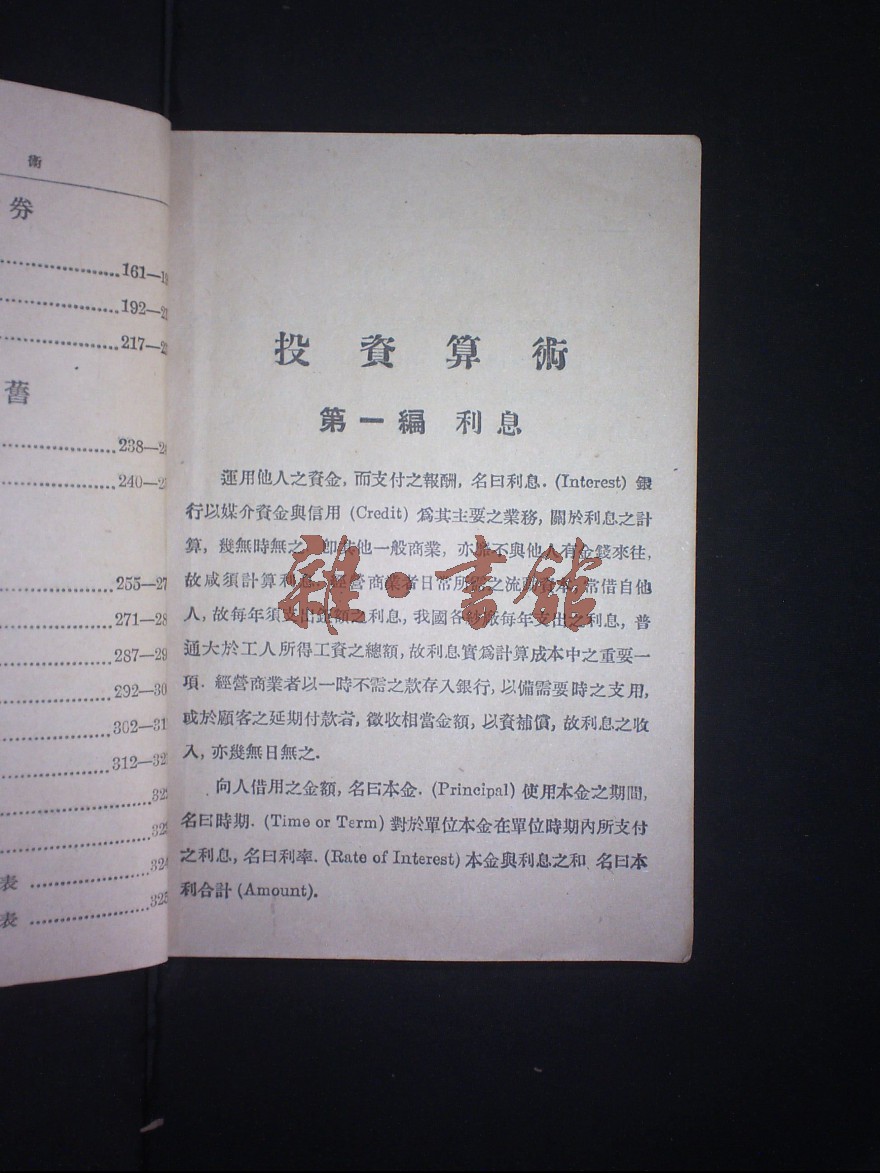 術
券
161—1
192—2
217—2
舊
238—2
240—2
255—27
271—28
287—29
292—30
302—31
312—32
32
32
表 324
表 325
投資算術
第一編 利息
運用他人之資金,而支付之報酬,名曰利息. (Interest) 銀
行以媒介資金與信用 (Credit) 爲其主要之業務,關於利息之計
算,幾無時無之 卽其他一般商業,亦靡不與他人有金錢來往,
故咸須計算利息. 經營商業者日常所需之流動資本,常借自他
人,故每年須支出鉅額之利息,我國各紗廠每年支出之利息,普
通大於工人所得工資之總額,故利息實爲計算成本中之重要一
項. 經營商業者以一時不需之款存入銀行,以備需要時之支用,
或於顧客之延期付款者,徵收相當金額,以資補償,故利息之收
入,亦幾無日無之.
向人借用之金額,名曰本金. (Principal) 使用本金之期間,
名曰時期. (Time or Term) 對於單位本金在單位時期內所支付
之利息,名曰利率. (Rate of Interest) 本金與利息之和 名曰本
利合計 (Amount).
雜·書館